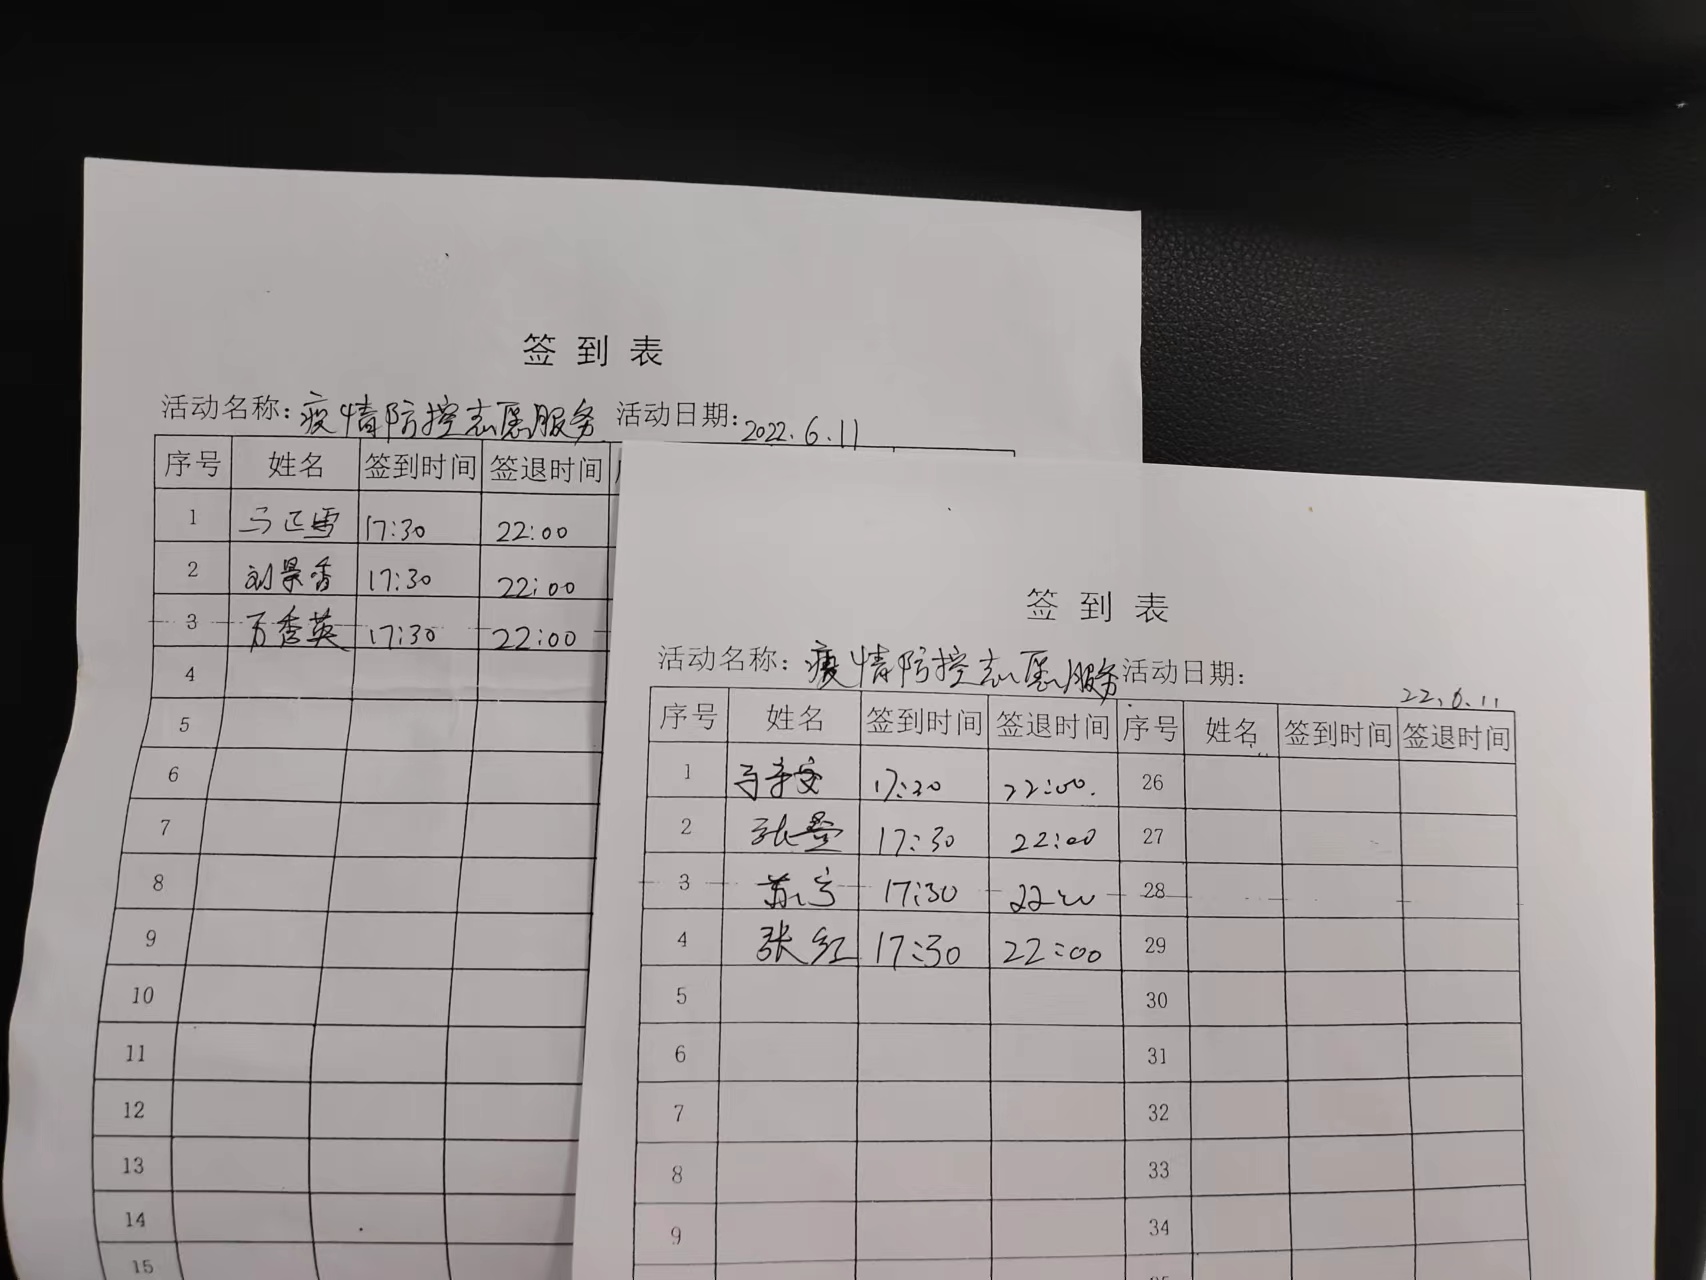 签到表
活动名称:疫情防控志愿服务 活动日期:2022.6.11
序号 姓名 签到时间 签退时间
1 17:30 22:00
2 刘景香 17:30 22:00
3 万秀英 17:30 22:00
4
5
6
7
8
9
10
11
12
13
14
15
签到表
活动名称:疫情防控志愿服务 活动日期:22.6.11
序号 姓名 签到时间 签退时间 序号 姓名 签到时间 签退时间
1 17:30 22:00. 26
2 17:30 22:00 27
3 17:30 22:00 28
4 张红 17:30 22:00 29
5 30
6 31
7 32
8 33
9 34